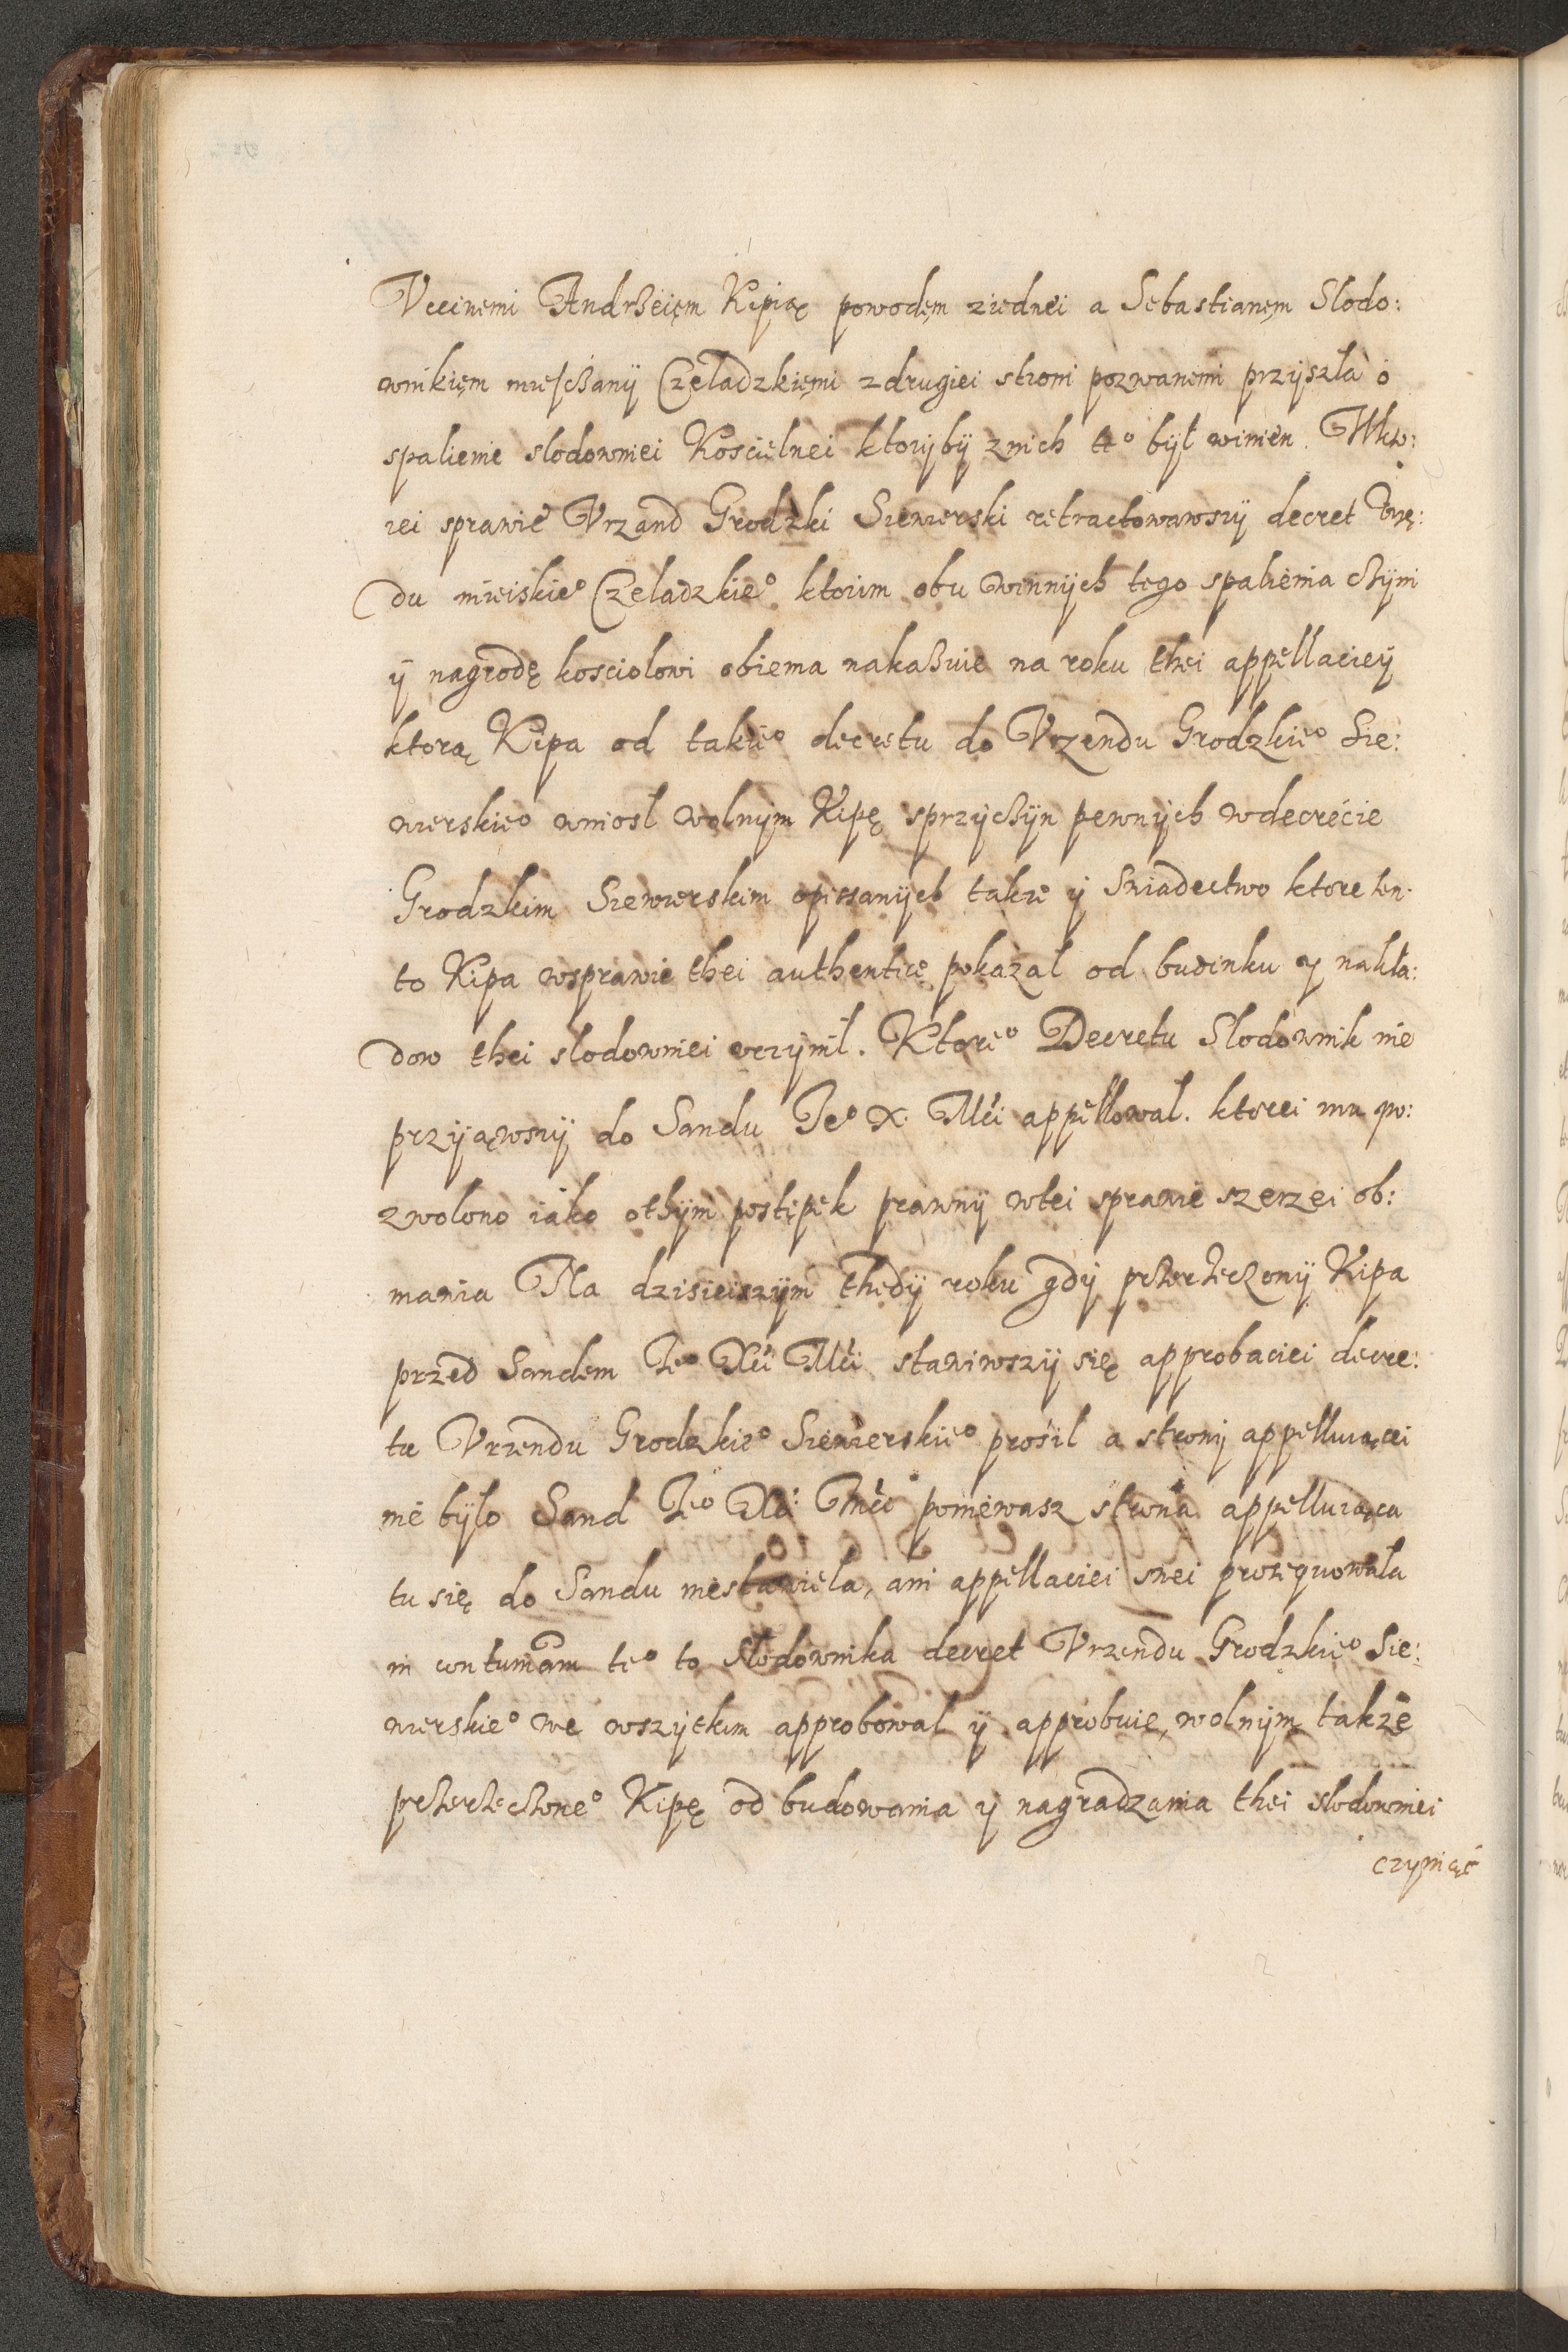 Vccinemi Andrßeięm Kipią powodęm ziednei a Sebastianęm Slodo:
wnikięm miesczanÿ Czeladzkięmi zdrugiei stroni pozwanemi przÿszła o
spalienie slodowniei Koscielnei ktorÿbÿ znich teº bÿł winien. Wkto:
rei sprawie Vrzand Grodzki Siewierski retractowawszÿ decret Vrzę:
du mieiskieº Czeladzkieº ktorim obu winnÿch tego spalienia cżÿni
ÿ nagrodę kosciolowi obiema nakaßuie na roku thei appellacieÿ
ktorą Kipa od takieº decretu do Vrzendu Grodzkieº Sie:
wierskieº wniosl wolnÿm Kipę sprzÿcżÿn pewnÿch wdecrecie
Grodzkim Siewierskim opissanÿch takie ÿ Swiadectwo ktore ten
to Kipa wsprawie thei authentice pokazal od budinku y nakła:
dow thei slodowniei vczÿnił. Ktoreº Decretu Slodownik nie
przÿiąwszÿ do Sandu Jeº X. Mći appellowal. ktorei mu po:
zwolono iako othÿm postępek prawnÿ wtei sprawie szerzei ob:
mawia Na dzisieiszÿm thedÿ roku gdÿ przerzeczonÿ Kipa
przed Sandem Jeº Xći Mći stawiwszÿ się approbaciei decre:
tu Vrzendu Grodzkieº Siewierskieº prosil a stronÿ appelluiącei
nie bÿło Sand Jeº Xći Mći poniewasz strona appelluiąca
tu się do Sandu niestawiela, ani appellaciei swei prosequowała
in contumam teº to Slodownika decret Vrzendu Grodzkieº Sie:
wierskieº we wszÿtkim approbował ÿ approbuie, wolnÿm także
przerzeczoneº Kipę od budowania y nagradzania thei slodowniei
czyniąc